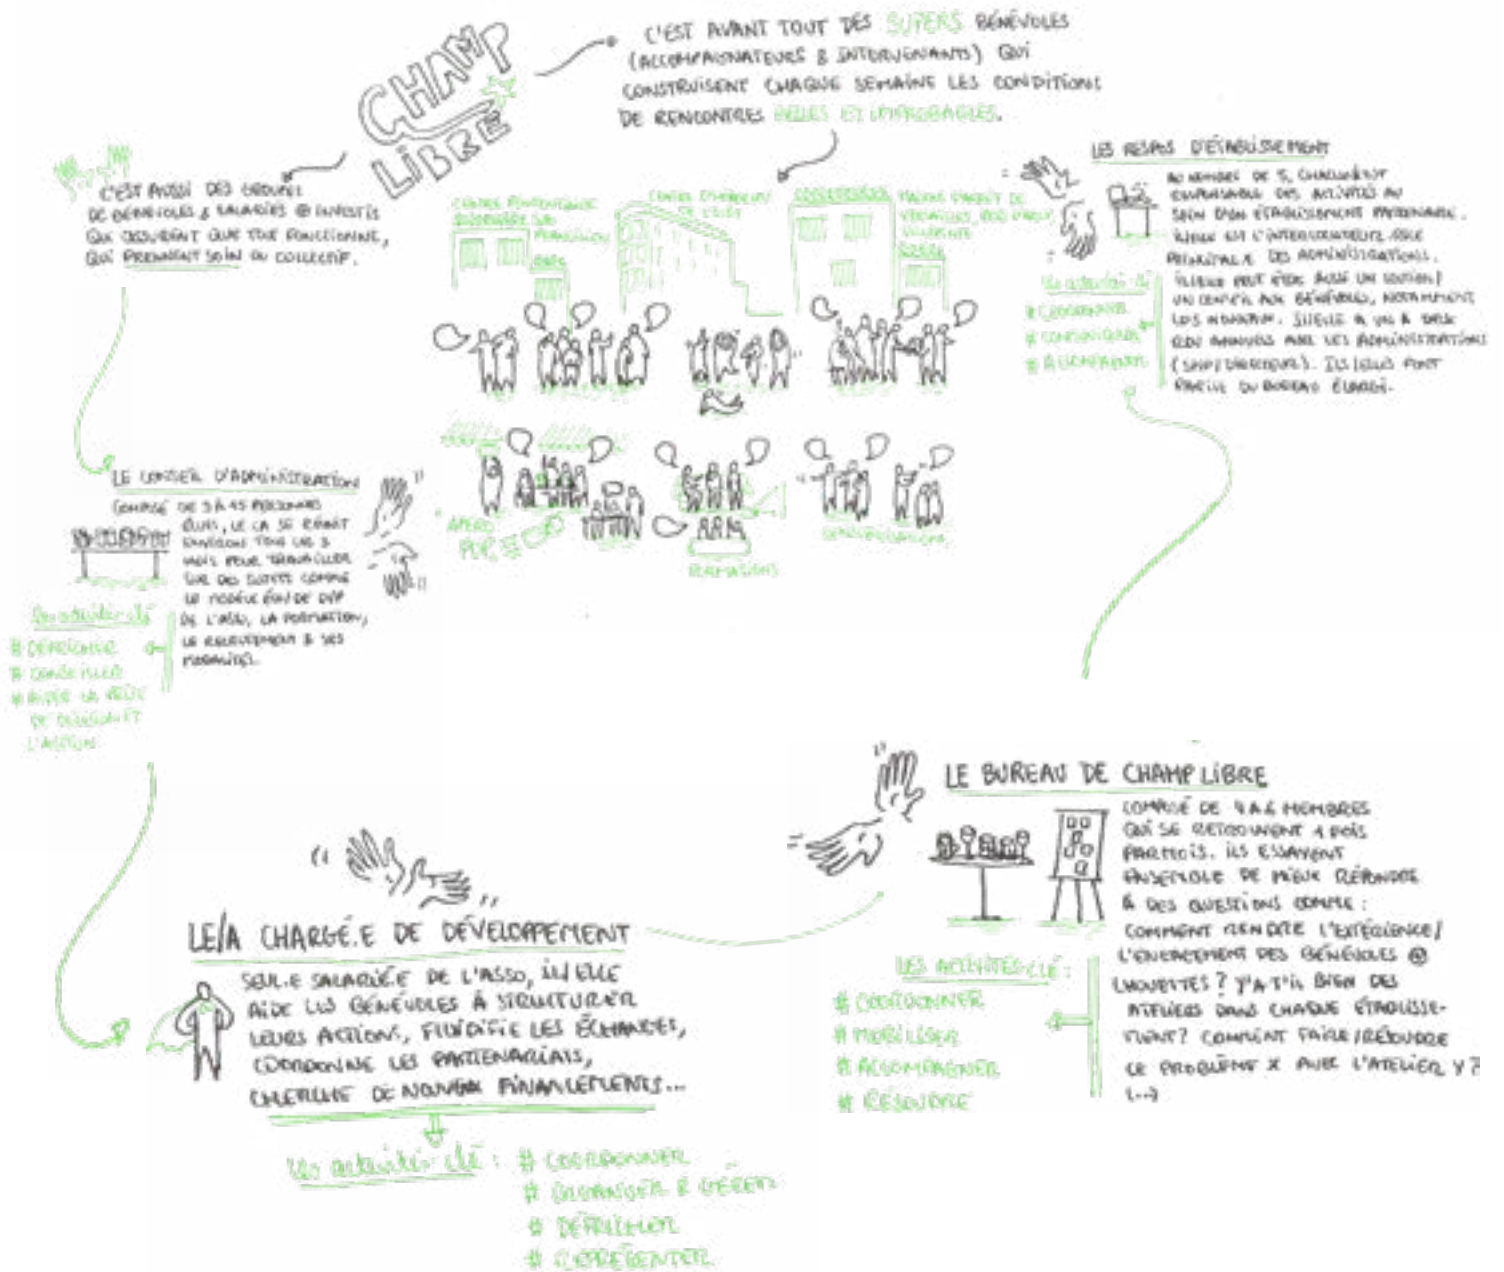 CHAMP
LIBRE
C'EST AVANT TOUT DES SUPERS BÉNÉVOLES
(ACCOMPAGNATEURS & INTERVENANTS) QUI
CONSTRUISENT CHAQUE SEMAINE LES CONDITIONS
DE RENCONTRES BELLES ET IMPROBABLES.
C'EST AUSSI DES GROUPES
DE BÉNÉVOLES & SALARIÉS @ INVESTIS
QUI ASSURENT QUE TOUT FONCTIONNE,
QUI PRENNENT SOIN DU COLLECTIF.
CENTRE PÉNITENTIAIRE
MAISON D'ARRÊT DE
LES RESPOS D'ÉTABLISSEMENT
AU NOMBRE DE 5, CHACUN EST
RESPONSABLE DES ACTIVITÉS AU
SEIN D'UN ÉTABLISSEMENT PARTENAIRE.
PRINCIPAL.E DES ADMINISTRATIONS.
IL/ELLE PEUT ÊTRE AUSSI UN SOUTIEN/
UN CONSEIL AUX BÉNÉVOLES, NOTAMMENT
RDV ANNUELS AVEC LES ADMINISTRATIONS
(SPIP/DIRECTEUR). ILS/ELLES FONT
PARTIE DU BUREAU ÉLARGI.
Les activités clé
# COORDONNER
# COMMUNIQUER
# ACCOMPAGNER
LE CONSEIL D'ADMINISTRATION
COMPOSÉ DE 3 À 15 PERSONNES
ÉLUES, LE CA SE RÉUNIT
ENVIRON TOUS LES 3
MOIS POUR TRAVAILLER
SUR DES SUJETS COMME
LE MODÈLE ÉCO/DE DVP
DE L'ASSO, LA FORMATION,
LE RECRUTEMENT & SES
MODALITÉS.
Les activités clé
# DÉFRICHER
# CONSEILLER
# AIDER LA PRISE
DE DÉCISION ET
L'ACTION
APÉRO
POP
FORMATIONS
SENSIBILISATIONS
LE BUREAU DE CHAMP LIBRE
COMPOSÉ DE 4 À 6 MEMBRES
QUI SE RETROUVENT 1 FOIS
PAR MOIS. ILS ESSAYENT
ENSEMBLE DE MIEUX RÉPONDRE
À DES QUESTIONS COMME :
COMMENT RENDRE L'EXPÉRIENCE/
L'ENGAGEMENT DES BÉNÉVOLES @
CHOUETTES ? Y'A T'IL BIEN DES
ATELIERS DANS CHAQUE ÉTABLISSE-
MENT ? COMMENT FAIRE/RÉSOUDRE
CE PROBLÈME X AVEC L'ATELIER Y ?
(...)
LES ACTIVITÉS CLÉ :
# COORDONNER
# MOBILISER
# ACCOMPAGNER
# RÉSOUDRE
LE/A CHARGÉ.E DE DÉVELOPPEMENT
SEUL.E SALARIÉ.E DE L'ASSO, IL/ELLE
AIDE LES BÉNÉVOLES À STRUCTURER
LEURS ACTIONS, FLUIDIFIE LES ÉCHANGES,
COORDONNE LES PARTENARIATS,
CHERCHE DE NOUVEAUX FINANCEMENTS...
Les activités clé :
# COORDONNER
# ORGANISER & GÉRER
# DÉFRICHER
# REPRÉSENTER